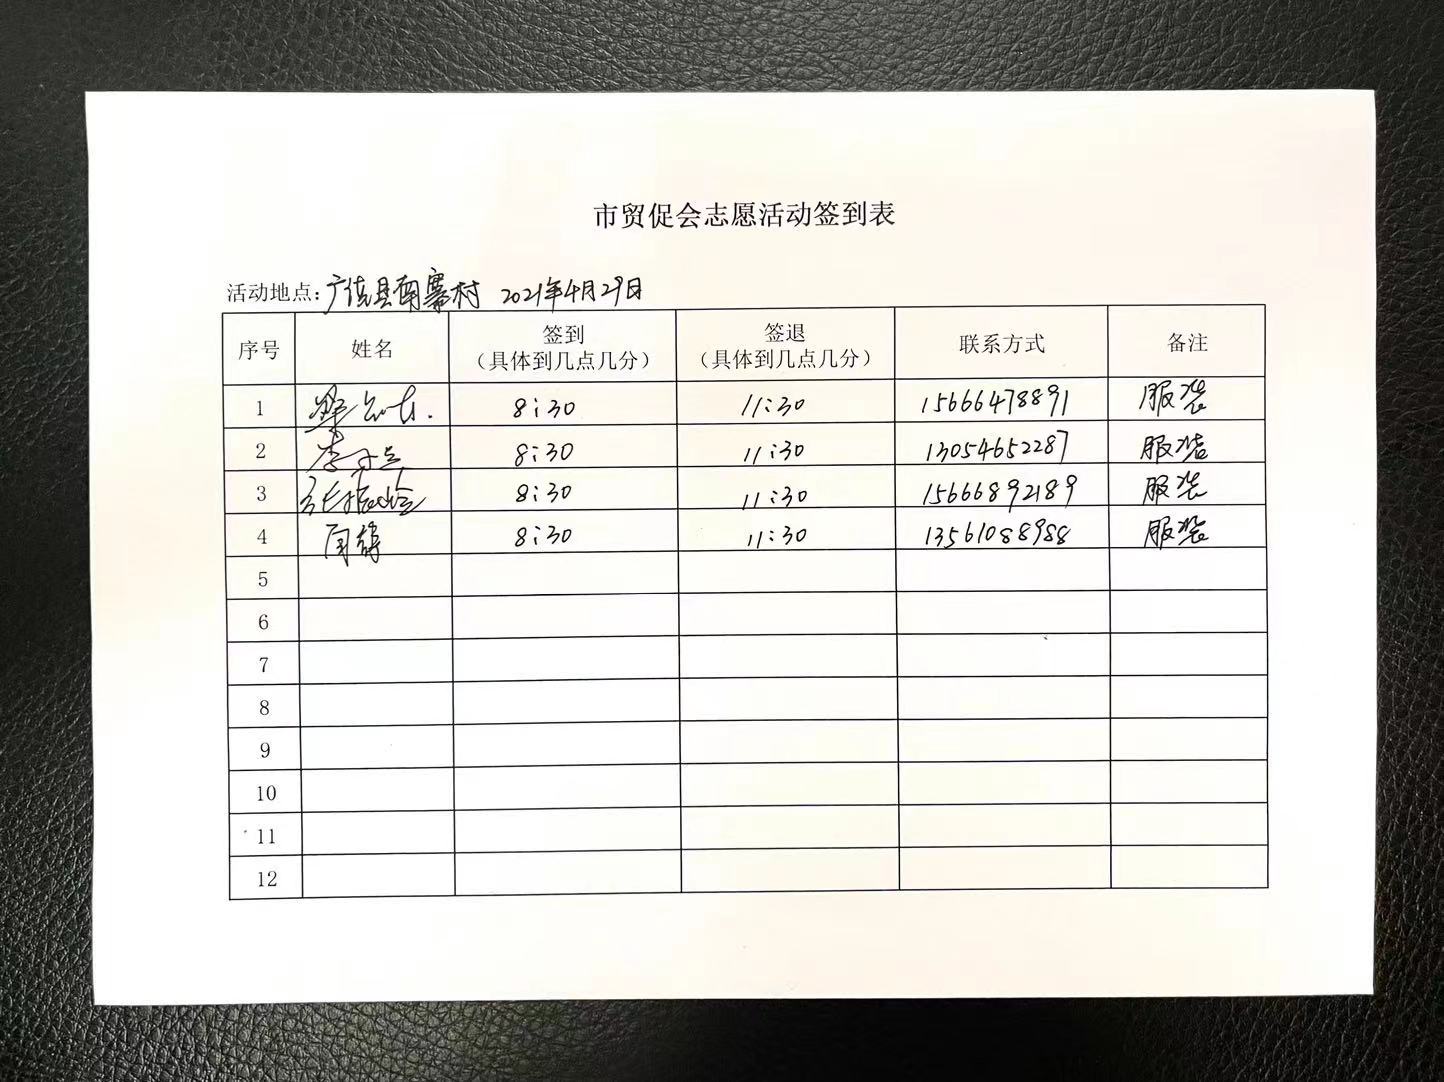 市贸促会志愿活动签到表
活动地点: 广饶县南寨村 2021年4月29日
序号 姓名 签到（具体到几点几分） 签退（具体到几点几分） 联系方式 备注
1 8:30 11:30 15666478891 服装
2 李 8:30 11:30 13054652287 服装
3 张 8:30 11:30 15666892189 服装
4 8:30 11:30 13561088988 服装
5
6
7
8
9
10
11
12